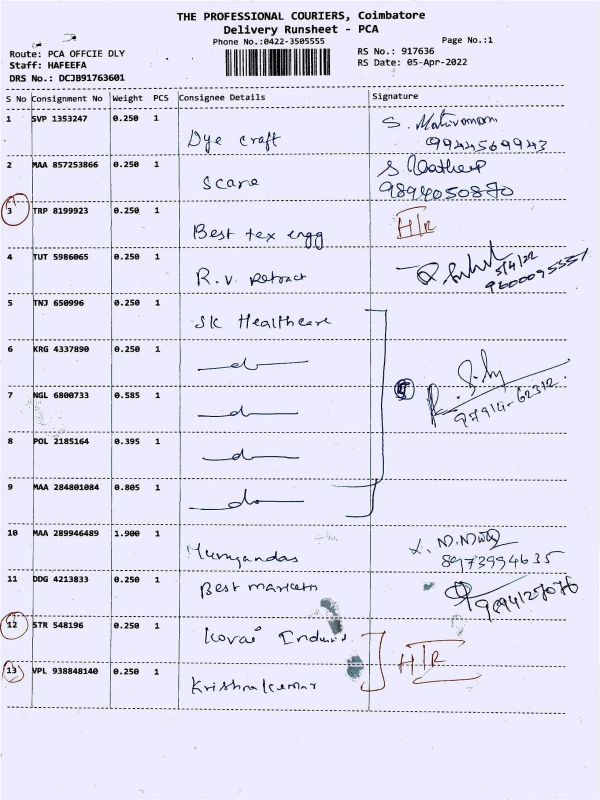 THE PROFESSIONAL COURIERS, Coimbatore
Delivery Runsheet - PCA
Phone No.:0422-3505555
Page No.:1
Route: PCA OFFCIE DLY
RS No.: 917636
Staff: HAFEEFA
RS Date: 05-Apr-2022
DRS No.: DCJB91763601
S No Consignment No Weight PCS Consignee Details Signature
1 SVP 1353247 0.250 1 Dye craft
9944569943
2 MAA 857253866 0.250 1 Scane
9894050870
3 TRP 8199923 0.250 1 Best tex engg H/R
4 TUT 5986065 0.250 1 R.V. Petract
5/4/22
5 TNJ 650996 0.250 1 SK Healthcare
6 KRG 4337890 0.250 1 do
7 NGL 6800733 0.585 1 do
97914-62312
8 POL 2185164 0.395 1 do
9 MAA 284801084 0.805 1 do
10 MAA 289946489 1.900 1 Murugandas
8973994635
11 DDG 4213833 0.250 1 Best markets
12 STR 548196 0.250 1 Kovai
H/R
13 VPL 938848140 0.250 1 Krishnakumar